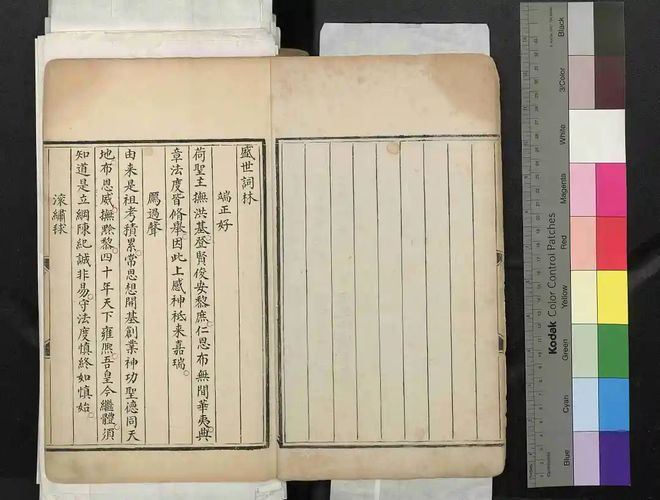 盛世詞林
端正好
荷聖主撫洪基。登賢俊安黎庶。仁恩布無間華夷。典
章法度皆脩舉。因此上感神祗来嘉瑞。
鴈過聲
由来是祖考積累。常思想開基創業神功聖德同天
地布恩威。撫黔黎。四十年天下雍熈。吾皇今繼體。須
知道是立綱陳紀誠非易。守法度慎終如慎始。
滚繡毬
Kodak Color Control Patches
Black
3/Color
White
Magenta
Red
Yellow
Green
Cyan
Blue